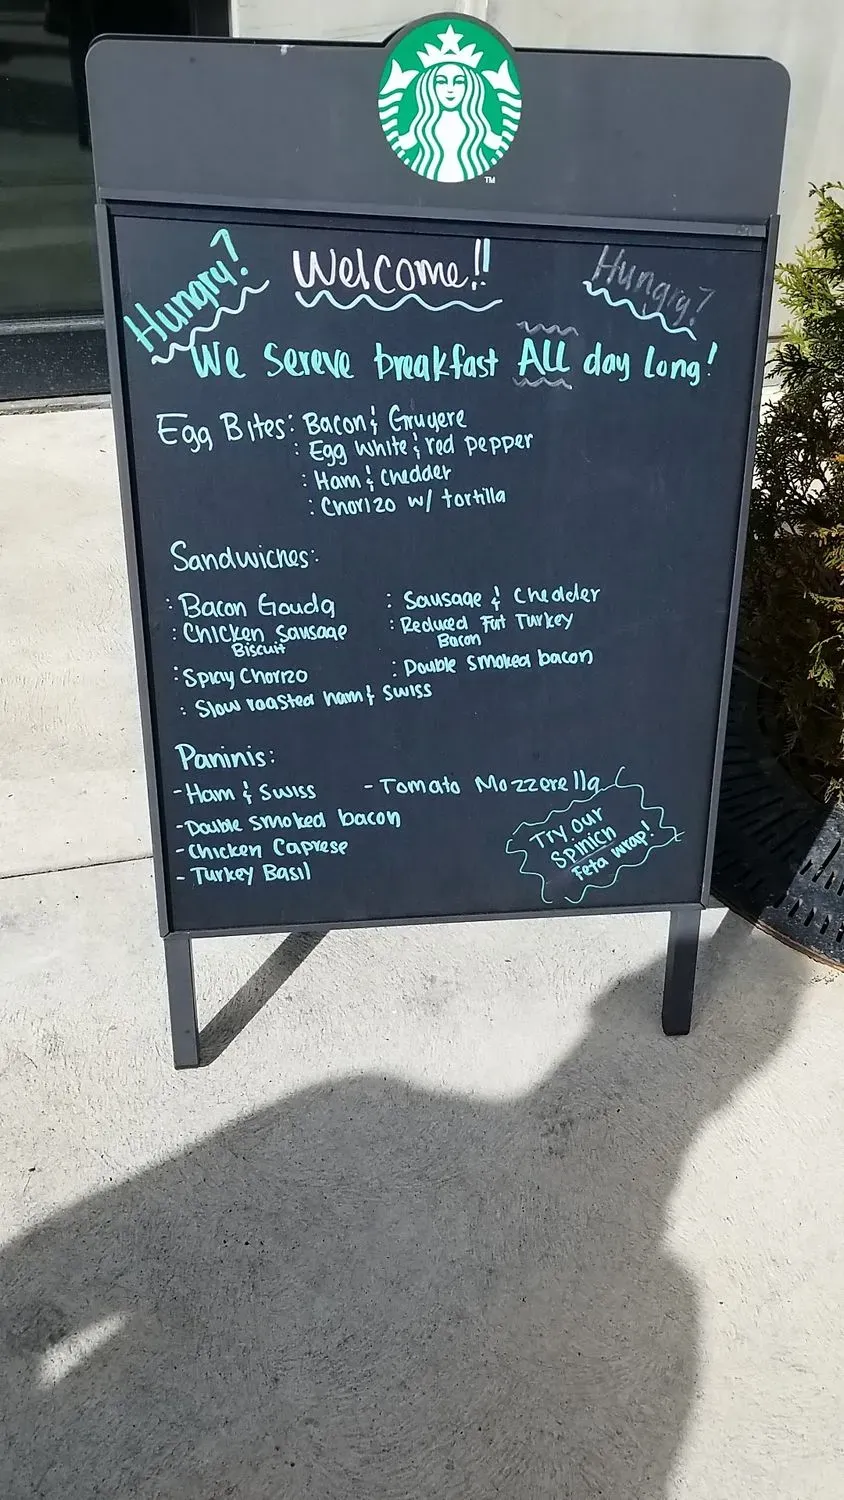 TM
Hungry? Welcome!! Hungry?
We sereve breakfast All day long!
Egg Bites: Bacon & Gruyere
: Egg white & red pepper
: Ham & chedder
: Chorizo w/ tortilla
Sandwiches:
: Bacon Gouda : Sausage & Chedder
: Chicken sausage : Reduced Fat Turkey
Biscuit Bacon
: Spicy Chorizo : Double smoked bacon
: Slow roasted ham & swiss
Paninis:
- Ham & Swiss - Tomato Mozzerella
- Double smoked bacon
- Chicken Caprese
- Turkey Basil
Try our
Spinich
Feta wrap!